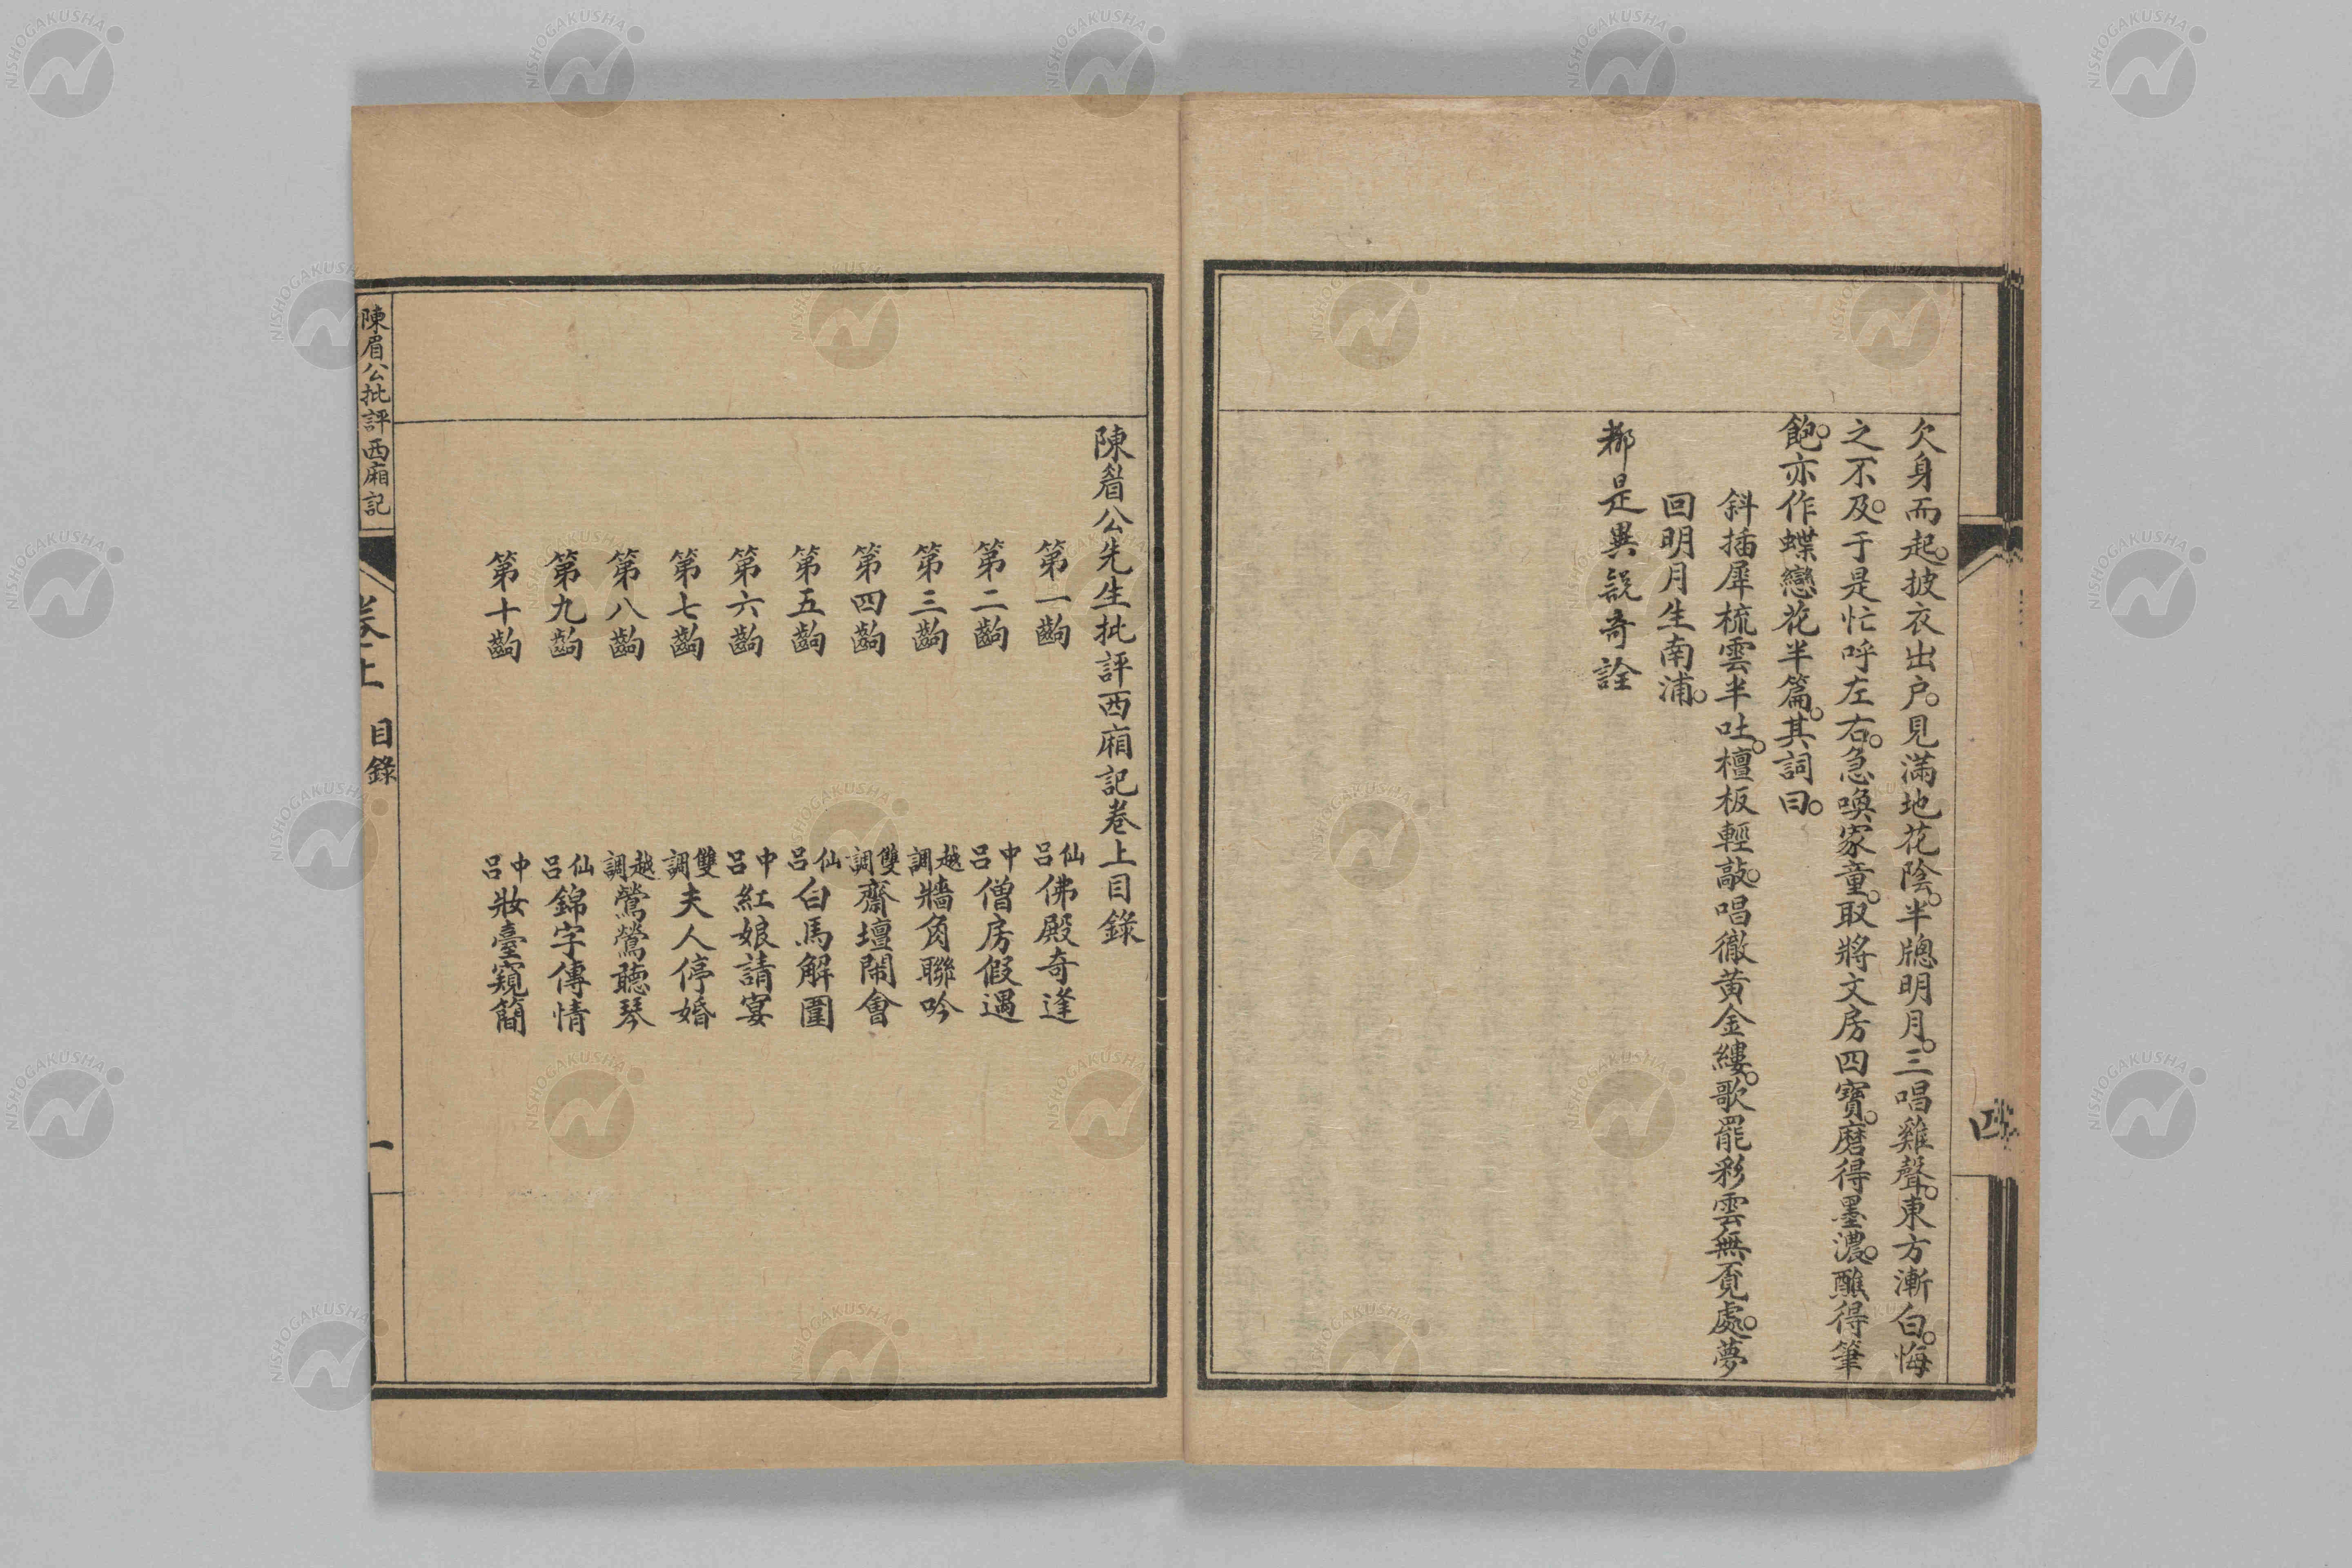 欠身而起。披衣出户。見滿地花陰。半牕明月。三唱雞聲。東方漸白。悔
之不及。于是忙呼左右。急喚家童。取將文房四寶。磨得墨濃。蘸得筆
飽。亦作蝶戀花半篇。其詞曰。
斜插犀梳雲半吐。檀板輕敲。唱徹黄金縷。歌罷彩雲無覓處。夢
回明月生南浦。
都是異説奇詮
四
陳眉公先生批評西廂記卷上目錄
第一齣 仙呂 佛殿奇逢
第二齣 中呂 僧房假遇
第三齣 越調 牆角聯吟
第四齣 雙調 齋壇鬧會
第五齣 仙呂 白馬解圍
第六齣 中呂 紅娘請宴
第七齣 雙調 夫人停婚
第八齣 越調 鶯鶯聽琴
第九齣 仙呂 錦字傳情
第十齣 中呂 妝臺窺簡
陳眉公批評西廂記 卷上 目錄 一
NISHOGAKUSHA